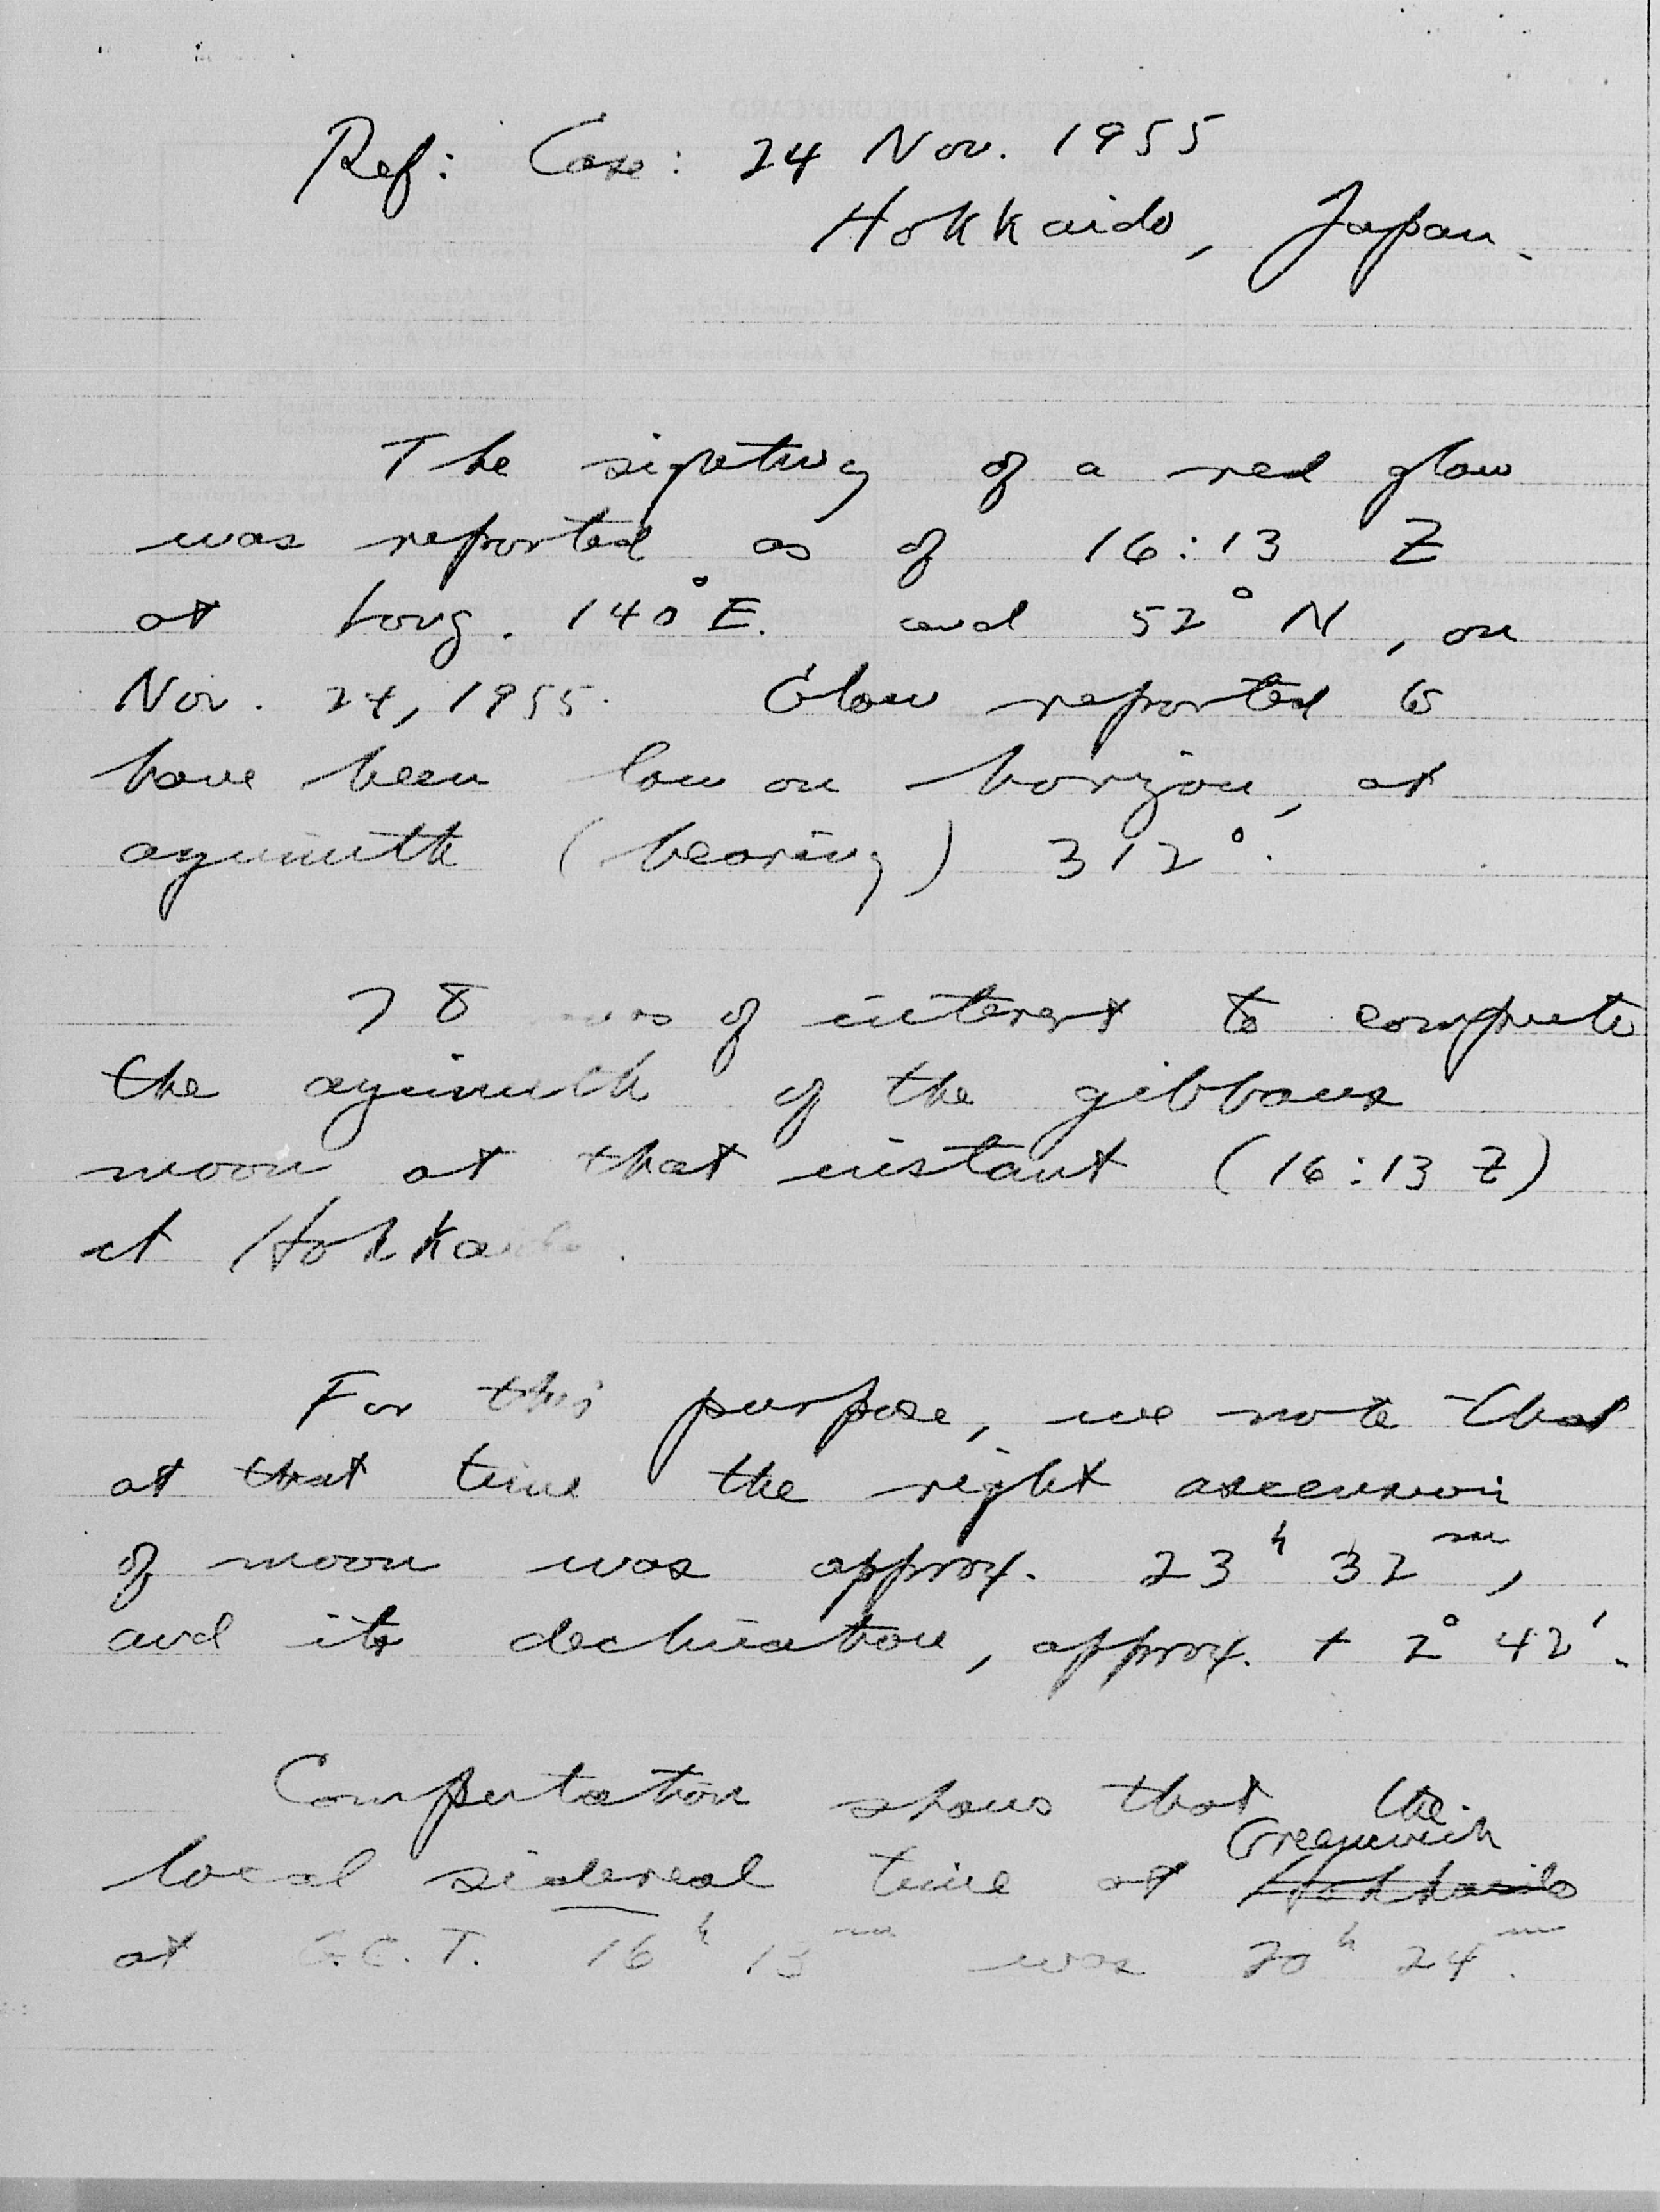 Ref: Case: 24 Nov. 1955
Hokkaido, Japan.
The sighting of a red glow
was reported as of 16:13 Z
at Long. 140° E. and 52° N, on
Nov. 24, 1955. Glow reported to
have been low on horizon, at
azimuth (bearing) 312°.
was of interest to compute
the azimuth of the gibbous
moon at that instant (16:13 Z)
at Hokkaido.
For this purpose, we note that
at that time the right ascension
of moon was approx. 23h 32m,
and its declination, approx. + 2° 42'.
Computation shows that the
Greenwich
local sidereal time at Hokkaido
at G.C.T. 16h 13m was 20h 24m.